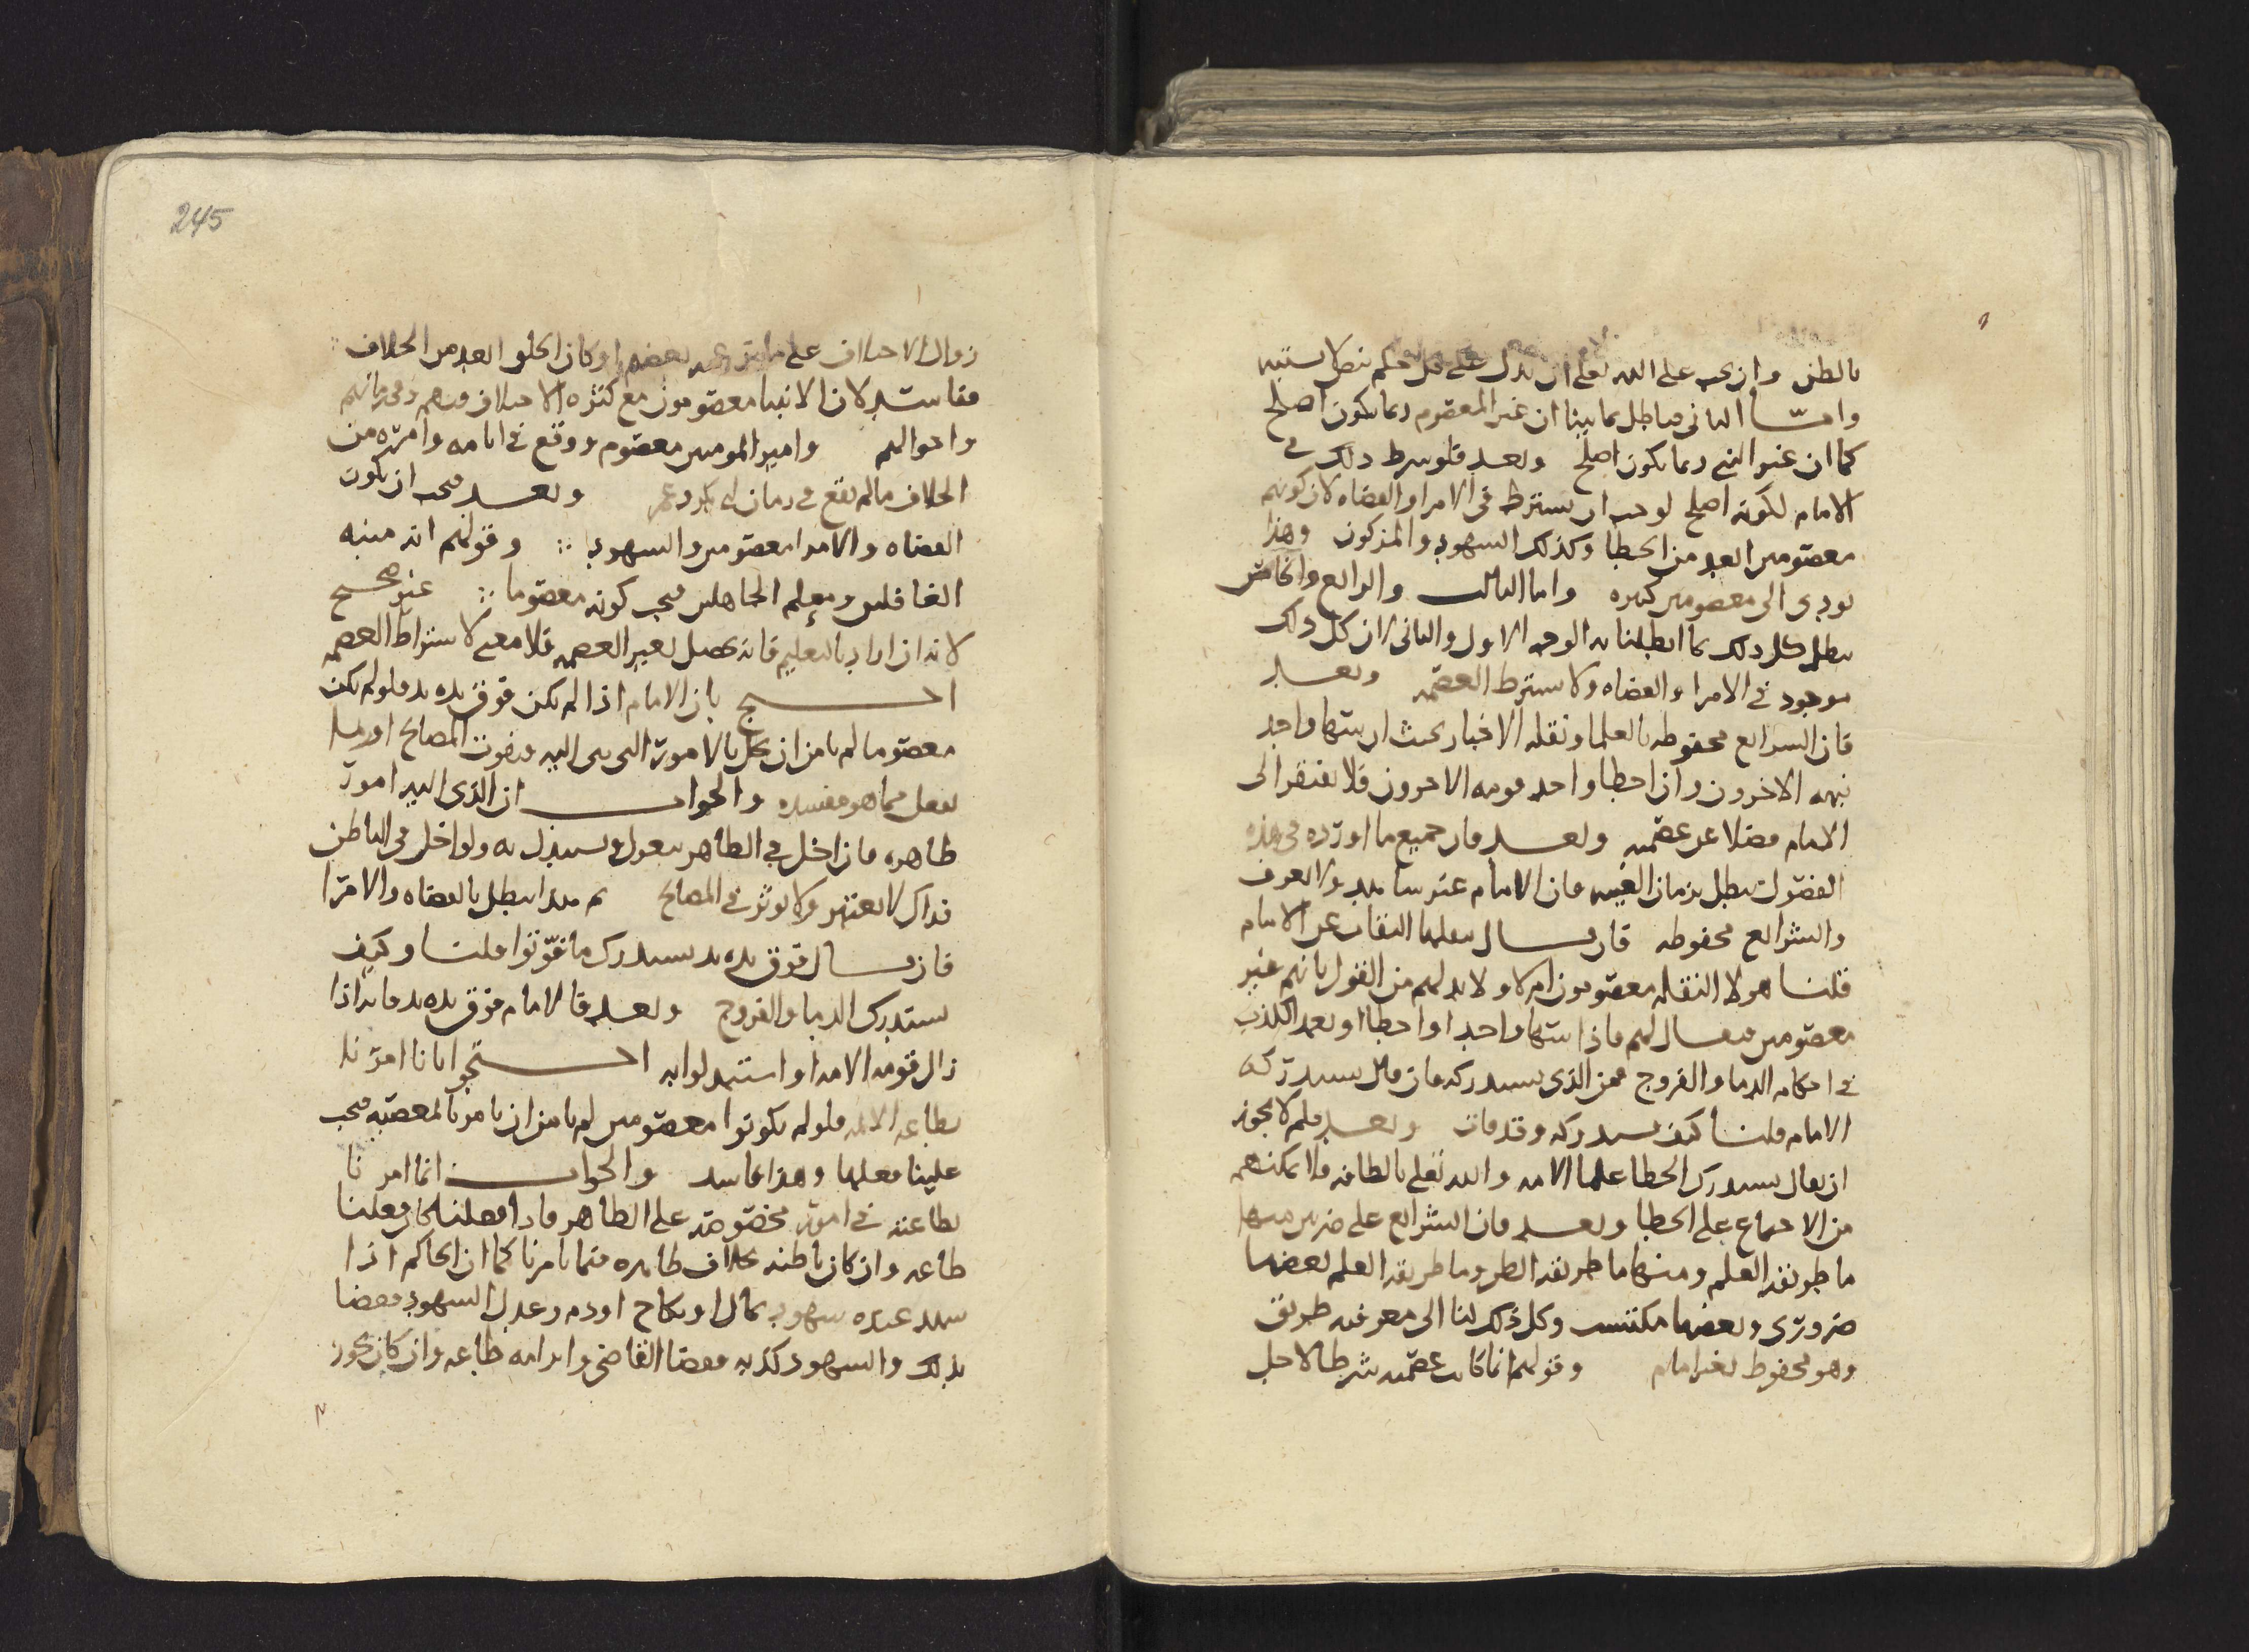 بالظن وان يجب على الله تعلى ان يدل على كل حكم بنص لا يشتبه
وامــا الثاني فباطل بما بينا ان غير المعصوم ربما يكون اصلح
كما ان غير النبي ربما يكون اصلح وبعــد فلو شرط ذلك في
الامام لكونه اصلح لوجب ان يشترط في الامرا والقضاه لان كونهم
معصومين ابعد من الخطا وكذلك الشهود والمزكون وهذا
يودي الى معصومين كثيره واما الثالث والرابع والخامس
يبطل كل ذلك بما ابطلنا به الوجه الاول والثاني لان كل ذلك
موجود في الامرا والقضاه ولا يشترط العصمه وبعــد
فان الشرايع محفوظه بالعلما ونقله الاخبار بحيث ان سها واحد
نبهه الاخرون وان اخطا واحد قومه الاخرون فلا يفتقر الى
الامام فضلا عن عصمته وبعــد فان جميع ما اورده في هذه
الفصول يبطل بزمان الغيبه فان الامام غير شاهد ولا يعرف
والشرايع محفوظه فان قــال نقلها الثقات عن الامام
قلنــا هولا النقله معصومون ام لا ولا بد لهم من القول بانهم غير
معصومين فيقــال لهم فاذا سها واحد او اخطا او تعمد الكذب
في احكام الدما والفروج فمن الذي يستدركه فان قال يستدركه
الامام قلنــا كيف يستدركه وقد فات وبعــد فلم لا يجوز
ان يقال يستدرك الخطا علما الامه والله تعلى بالطافه فلا يمكنهم
من الاجماع على الخطا وبعــد فان الشرايع على ضربين منها
ما طريقه العلم ومنها ما طريقه الظن وما طريقه العلم بعضها
ضروري وبعضها مكتسب وكل ذلك لنا الى معرفته طريق
وهو محفوظ بغير امام وقولهم انما كانت عصمته شرطا لاجل
245
زوال الاختلاف على ما بعضهم او كان الخلق ابعد من الخلاف
ففاسد لان الانبيا معصومون مع كثره الاختلاف فيهم وفي زمانهم
واحوالهم وامير المومنين معصوم ووقع في ايامه وامره من
الخلاف ما لم يقع في زمان ابي بكر وعمر وبعــد فيجب ان يكون
القضاه والامرا معصومين والشهود وقولهم انه منبه
الغافلين ومعلم الجاهلين فيجب كونه معصوما غير صحيح
لانه ان اراد بالتعليم فانه يحصل بغير العصمه فلا معنى لاشتراط العصمه
احــتج بان الامام اذا لم يكن فوق يده يد فلو لم يكن
معصوما لم يامن ان يخل بالامور التي هي اليه فيفوت المصالح او ربما
يفعل مما هو مفسده والجوابــ ان الذي اليه امور
ظاهره فان اخل في الظاهر يعزل ويستبدل به ولو اخل في الباطن
فذاك لا يعتبر ولا يوثر في المصالح ثم هذا يبطل بالقضاه والامرا
فان قــال فوق يده يد يستدرك ما فوتوا قلنــا وكيف
يستدرك الدما والفروج وبعــد فالامام فوق يده يد فانه اذا
زال قومه الامه او استبدلوا به احــتجوا بانا امرنا
بطاعه الائمه فلو لم يكونوا معصومين لم يامن ان يامر بالمعصيه فيجب
علينا فعلها وهذا فاسد والجوابــ انما امرنا
بطاعته في امور مخصوصه على الظاهر فاذا فعلناه كان فعلنا
طاعه وان كان باطنه بخلاف ظاهره فيما يامرنا كما ان الحاكم اذا
شهد عنده شهود بمال او نكاح او دم وعدل الشهود فقضا
بذلك والشهود كذبه فقضا القاضي وابرامه طاعه وان كان يجوز